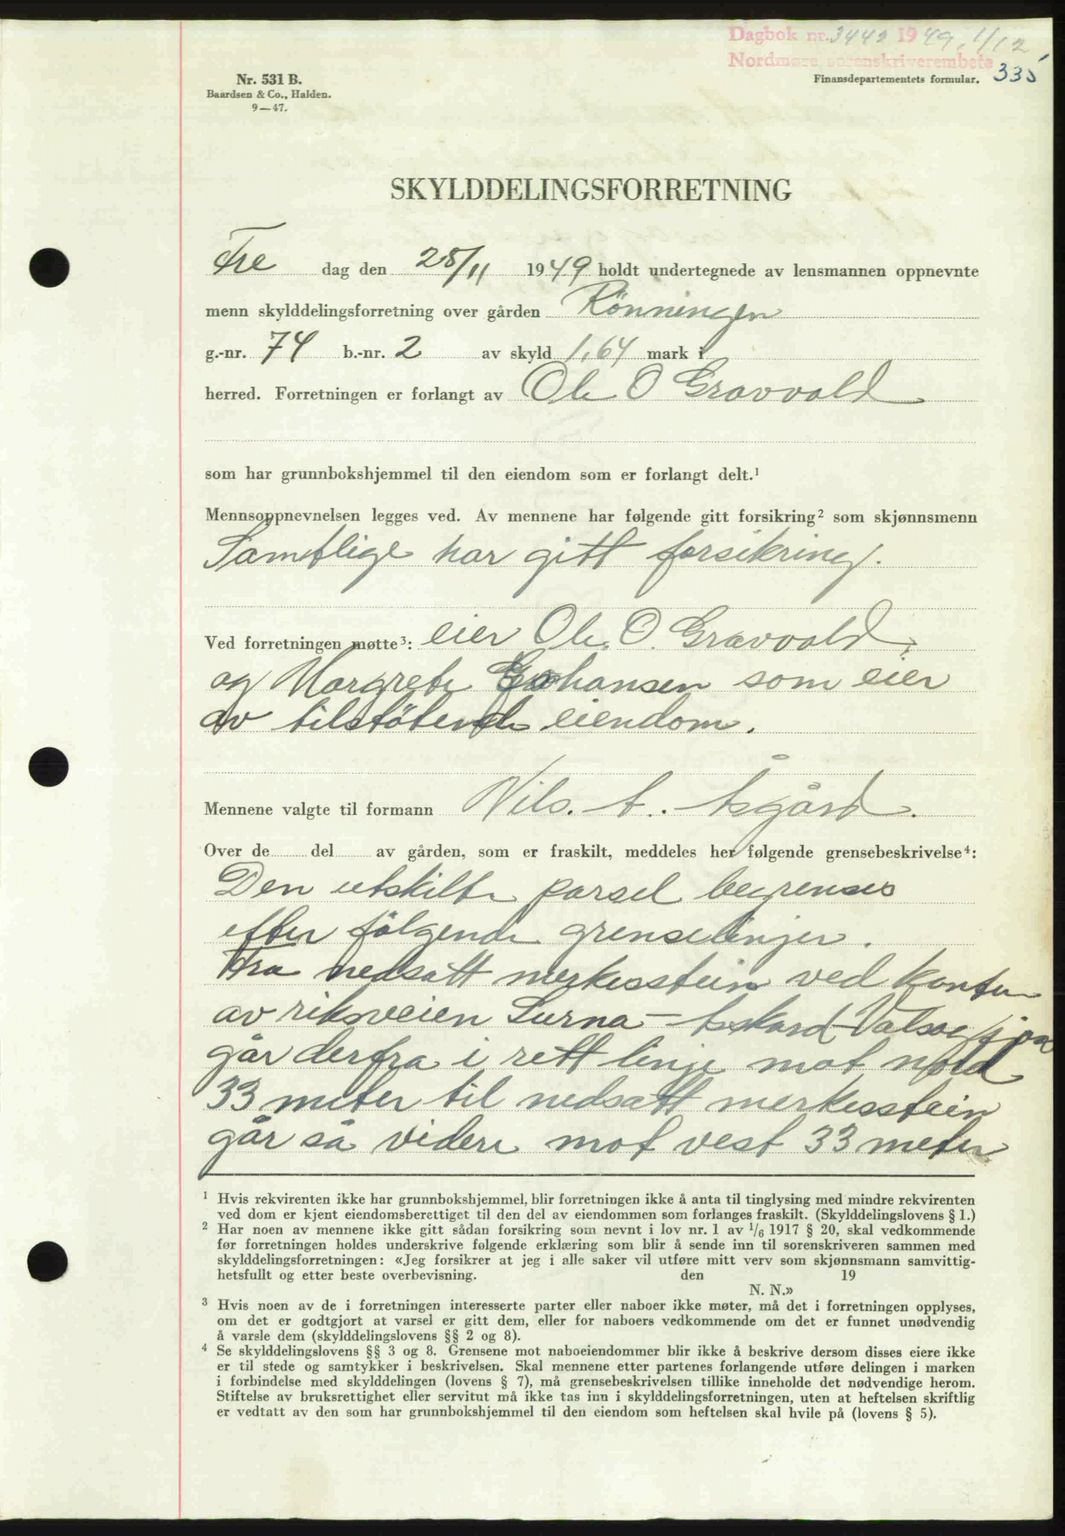 Dagbok nr. 3442 1949, 1/12
Nordmøre sorenskriverembete
335
Nr. 531 B.
Baardsen & Co., Halden.
9—47.
Finansdepartementets formular.
SKYLDDELINGSFORRETNING
Fre dag den 25/11 1949 holdt undertegnede av lensmannen oppnevnte
menn skylddelingsforretning over gården Rönningen
g.-nr. 74 b.-nr. 2 av skyld 1,64 mark i
herred. Forretningen er forlangt av Ole O Gravvold
som har grunnbokshjemmel til den eiendom som er forlangt delt.¹
Mennsoppnevnelsen legges ved. Av mennene har følgende gitt forsikring² som skjønnsmenn
Samtlige har gitt forsikring.
Ved forretningen møtte³: eier Ole O. Gravvold,
og Margrete Johansen som eier
av tilstötende eiendom.
Mennene valgte til formann Nils. A. Åsgård.
Over de del av gården, som er fraskilt, meddeles her følgende grensebeskrivelse⁴:
Den utskilte parsel begrenses
efter fölgende grenselinjer.
Fra nedsatt merkesstein ved kanten
av riksveien Surna -
går derfra i rett linje mot nord
33 meter til nedsatt merkesstein
går så videre mot vest 33 meter
¹ Hvis rekvirenten ikke har grunnbokshjemmel, blir forretningen ikke å anta til tinglysing med mindre rekvirenten
ved dom er kjent eiendomsberettiget til den del av eiendommen som forlanges fraskilt. (Skylddelingslovens § 1.)
² Har noen av mennene ikke gitt sådan forsikring som nevnt i lov nr. 1 av 1/6 1917 § 20, skal vedkommende
før forretningen holdes underskrive følgende erklæring som blir å sende inn til sorenskriveren sammen med
skylddelingsforretningen: «Jeg forsikrer at jeg i alle saker vil utføre mitt verv som skjønnsmann samvittig-
hetsfullt og etter beste overbevisning. den 19
N. N.»
³ Hvis noen av de i forretningen interesserte parter eller naboer ikke møter, må det i forretningen opplyses,
om det er godtgjort at varsel er gitt dem, eller for naboers vedkommende om det er funnet unødvendig
å varsle dem (skylddelingslovens §§ 2 og 8).
⁴ Se skylddelingslovens §§ 3 og 8. Grensene mot naboeiendommer blir ikke å beskrive dersom disses eiere ikke
er til stede og samtykker i beskrivelsen. Skal mennene etter partenes forlangende utføre delingen i marken
i forbindelse med skylddelingen (lovens § 7), må grensebeskrivelsen tillike inneholde det nødvendige herom.
Stiftelse av bruksrettighet eller servitut må ikke tas inn i skylddelingsforretningen, uten at heftelsen skriftlig
er vedtatt av den som har grunnbokshjemmel til den eiendom som heftelsen skal hvile på (lovens § 5).